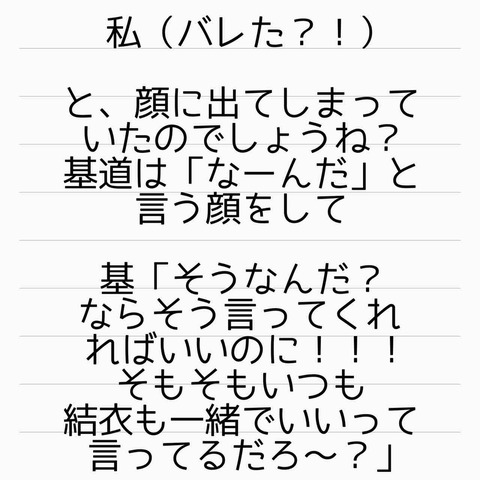 私（バレた？！）
と、顔に出てしまって
いたのでしょうね？
基道は「なーんだ」と
言う顔をして
基「そうなんだ？
ならそう言ってくれ
ればいいのに！！！
そもそもいつも
結衣も一緒でいいって
言ってるだろ〜？」